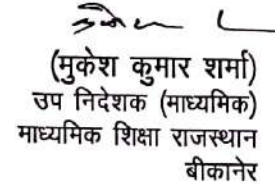 (मुकेश कुमार शर्मा)
उप निदेशक (माध्यमिक)
माध्यमिक शिक्षा राजस्थान
बीकानेर